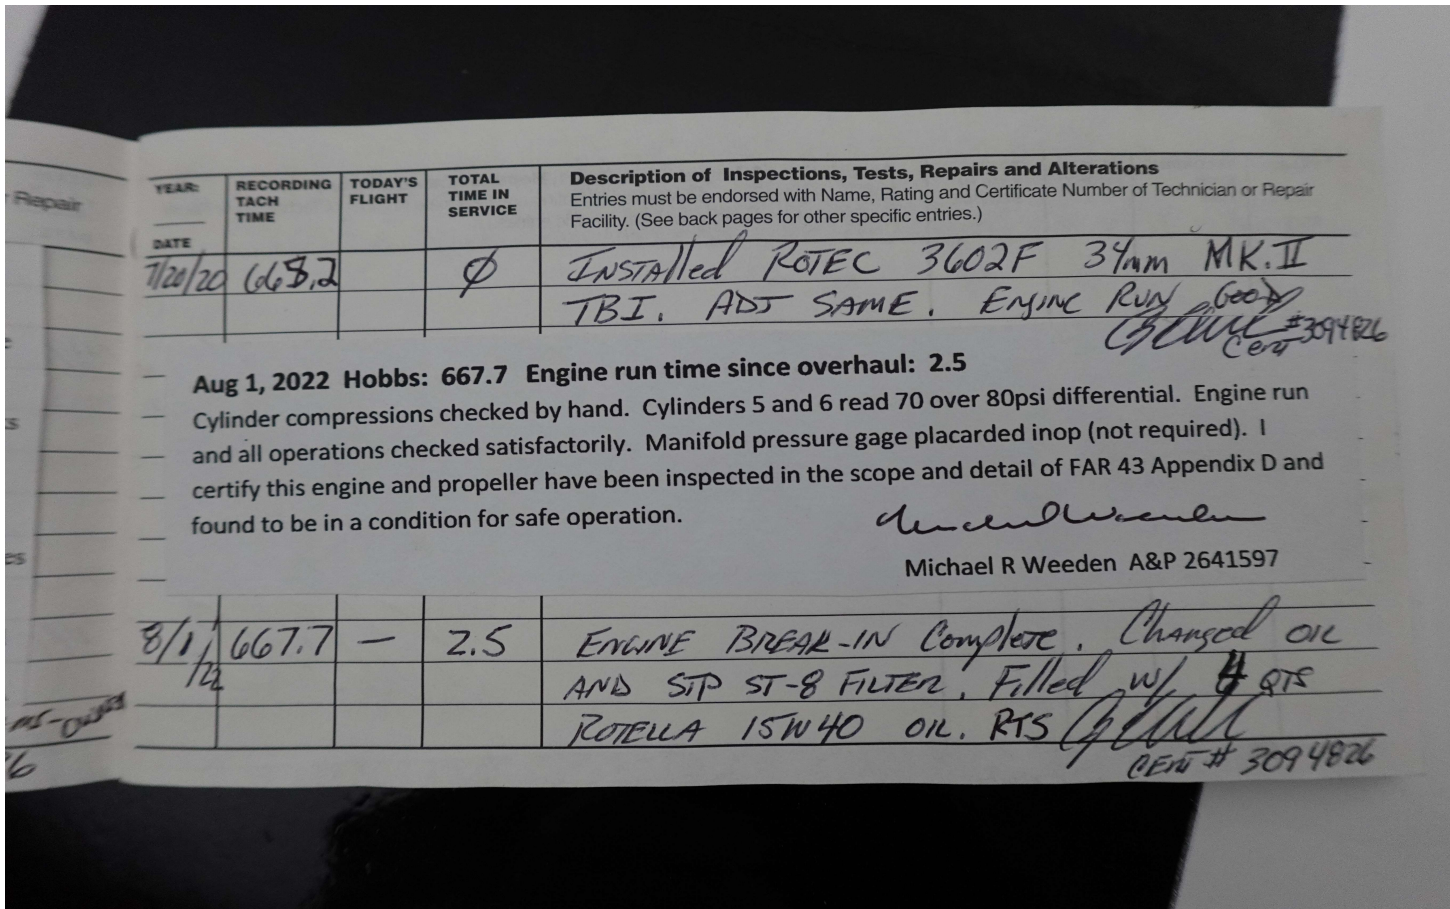 Repair
YEAR:
DATE
RECORDING
TACH
TIME
TODAY'S
FLIGHT
TOTAL
TIME IN
SERVICE
Description of Inspections, Tests, Repairs and Alterations
Entries must be endorsed with Name, Rating and Certificate Number of Technician or Repair
Facility. (See back pages for other specific entries.)
7/20/20 Ø INSTAlled ROTEC 3602F 34mm MK.II
TBI. ADJ SAME. ENgINE RUN GOOD
#3094826
Cert
Aug 1, 2022 Hobbs: 667.7 Engine run time since overhaul: 2.5
Cylinder compressions checked by hand. Cylinders 5 and 6 read 70 over 80psi differential. Engine run
and all operations checked satisfactorily. Manifold pressure gage placarded inop (not required). I
certify this engine and propeller have been inspected in the scope and detail of FAR 43 Appendix D and
found to be in a condition for safe operation.
Michael R Weeden A&P 2641597
8/1/22 667.7 — 2.5 ENGINE BREAK-IN Complete. Changed OIL
AND STP ST-8 FILTER. Filled w/ 4 QTS
ROTELLA 15W40 OIL. RTS
CERT # 3094826